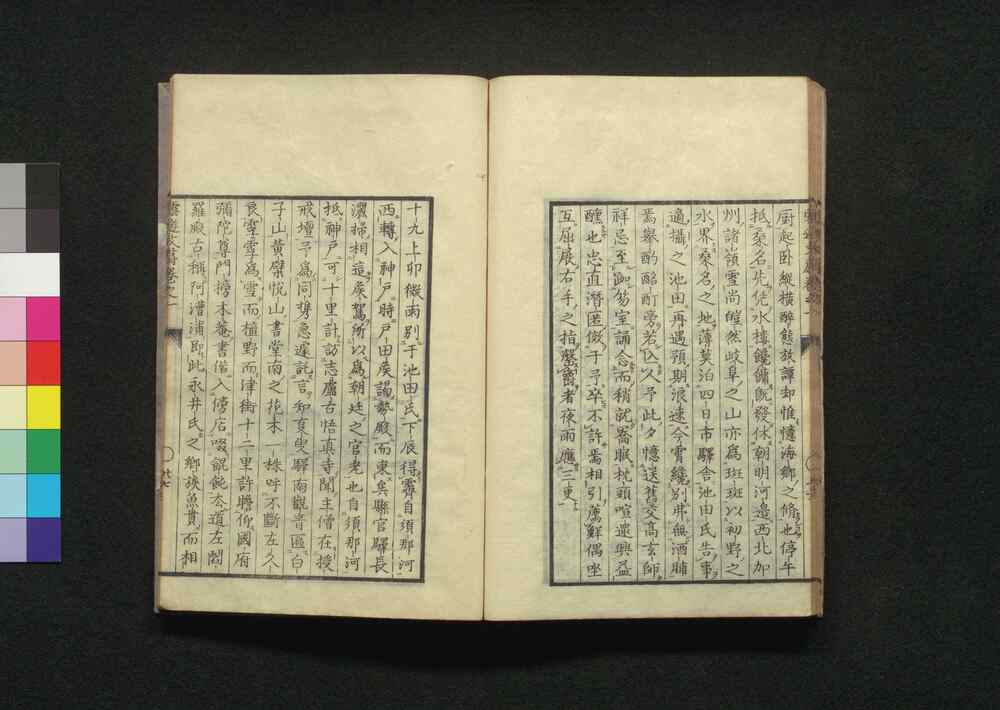 厨起臥縱横醉態放譚却惟憶海鄕之脩也停午
抵桑名先徒水樓饞饟既發休朝明河邉西北加
州諸嶺雪尚皚然岐阜之山亦爲斑斑以初野之
水界桑名之地薄莫泊四日市驛舎池田氏告事
適攝之池田再遇預期浪速今霄纔別弗無酒脯
焉擧酌酩酊旁若亾人予此夕憶送舊交高玄師
祥忌至跏笏室誦念而稍就
枕頭喧還興益
醺也忠直潛匿儆于予卒不許焉相引薦鮮偶坐
互屈展右手之指
者夜雨應三更
十九上卯微雨別于池田氏下辰得霽自須那河
西轉入神戸時戸田侯謁勢廟而東矣縣官驛長
灑掃相迎侯駕所以爲朝廷之官老也自須那河
抵神戸可十里計訪志廬古悟眞寺聞主僧在授
戒壇予爲同
急遽託言知夏叟驛兩觀音區白
子山黄檗悦山書堂南之花木一株呼不斷左久
良霏霏爲雪而櫨野而津街十二里許瞻仰國府
彌陀尊門
木菴書偕入傍店啜餛飩太道左閻
羅殿古稱阿漕浦即此永井氏之鄕挾魚貫而相